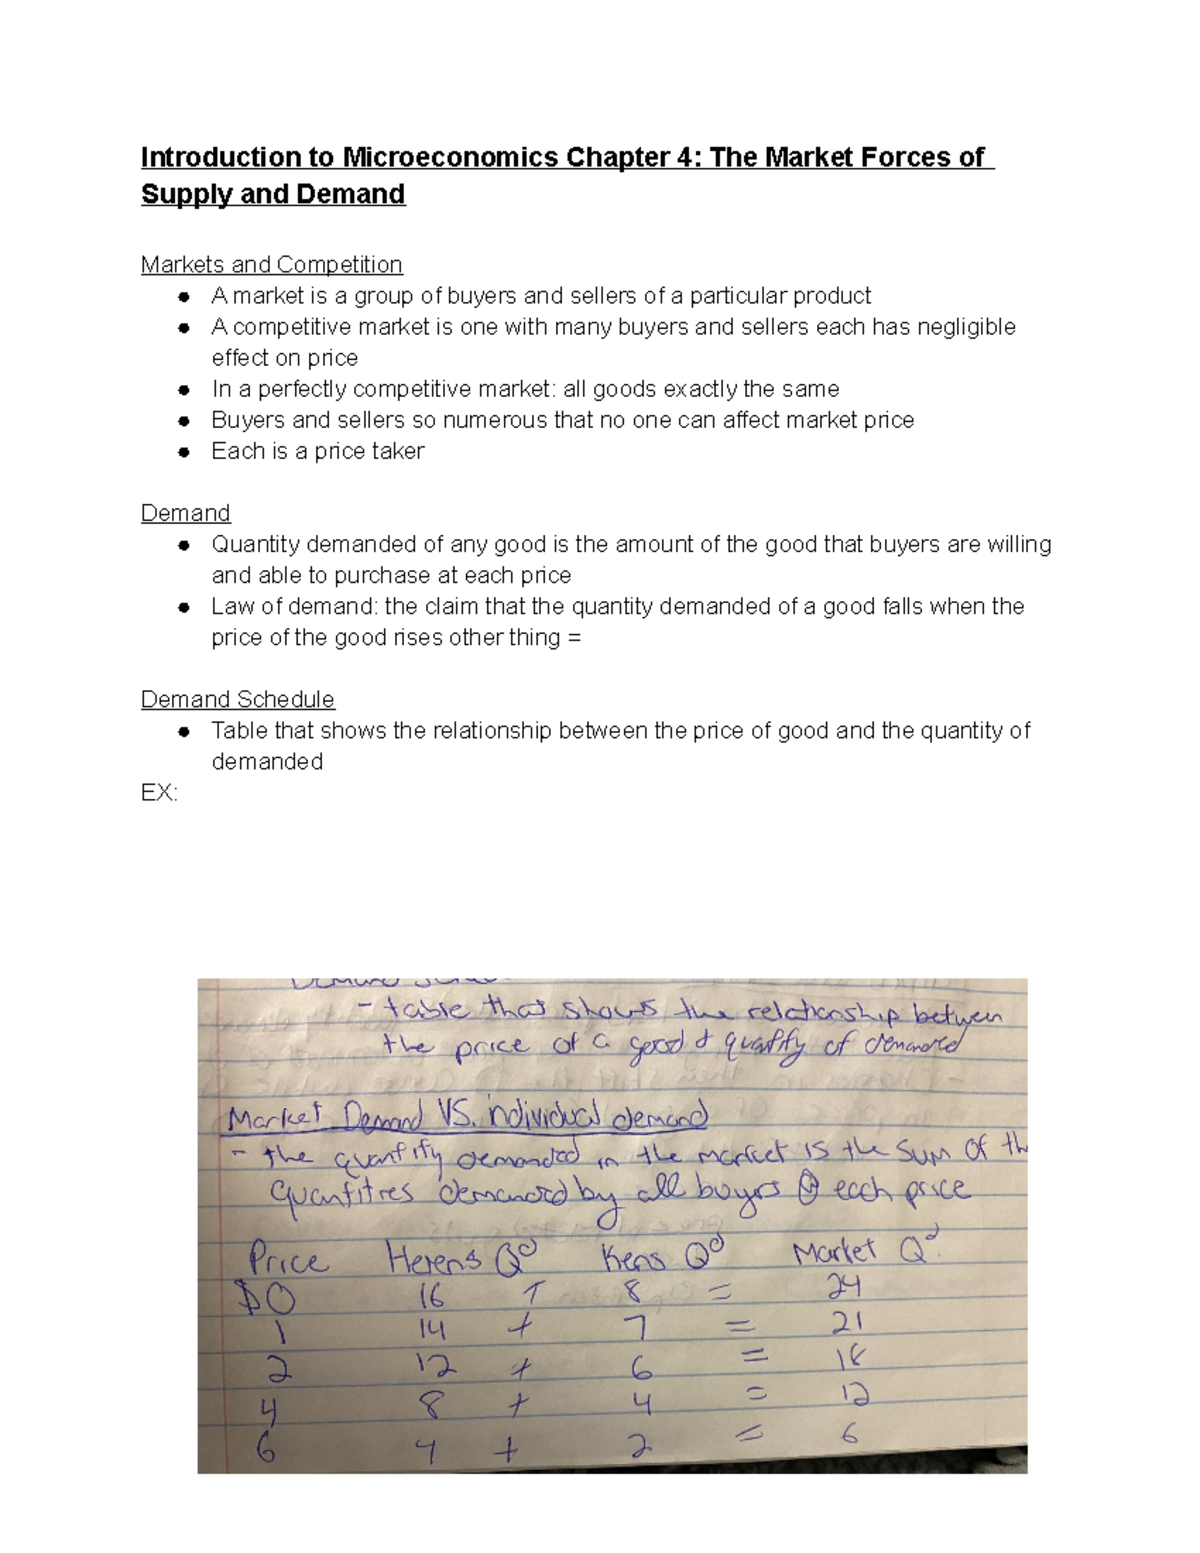 Introduction to Microeconomics Chapter 4: The Market Forces of
Supply and Demand
Markets and Competition
● A market is a group of buyers and sellers of a particular product
● A competitive market is one with many buyers and sellers each has negligible
effect on price
● In a perfectly competitive market: all goods exactly the same
● Buyers and sellers so numerous that no one can affect market price
● Each is a price taker
Demand
● Quantity demanded of any good is the amount of the good that buyers are willing
and able to purchase at each price
● Law of demand: the claim that the quantity demanded of a good falls when the
price of the good rises other thing =
Demand Schedule
● Table that shows the relationship between the price of good and the quantity of
demanded
EX:
- table that shows the relationship between
the price of a good & quantity of demanded
Market Demand VS. individual demand
- the quantity demanded in the market is the sum of th
quantities demanded by all buyers @ each price
Price Helens Qd Kens Qd Market Qd
$0 16 + 8 = 24
1 14 + 7 = 21
2 12 + 6 = 18
4 8 + 4 = 12
6 4 + 2 = 6